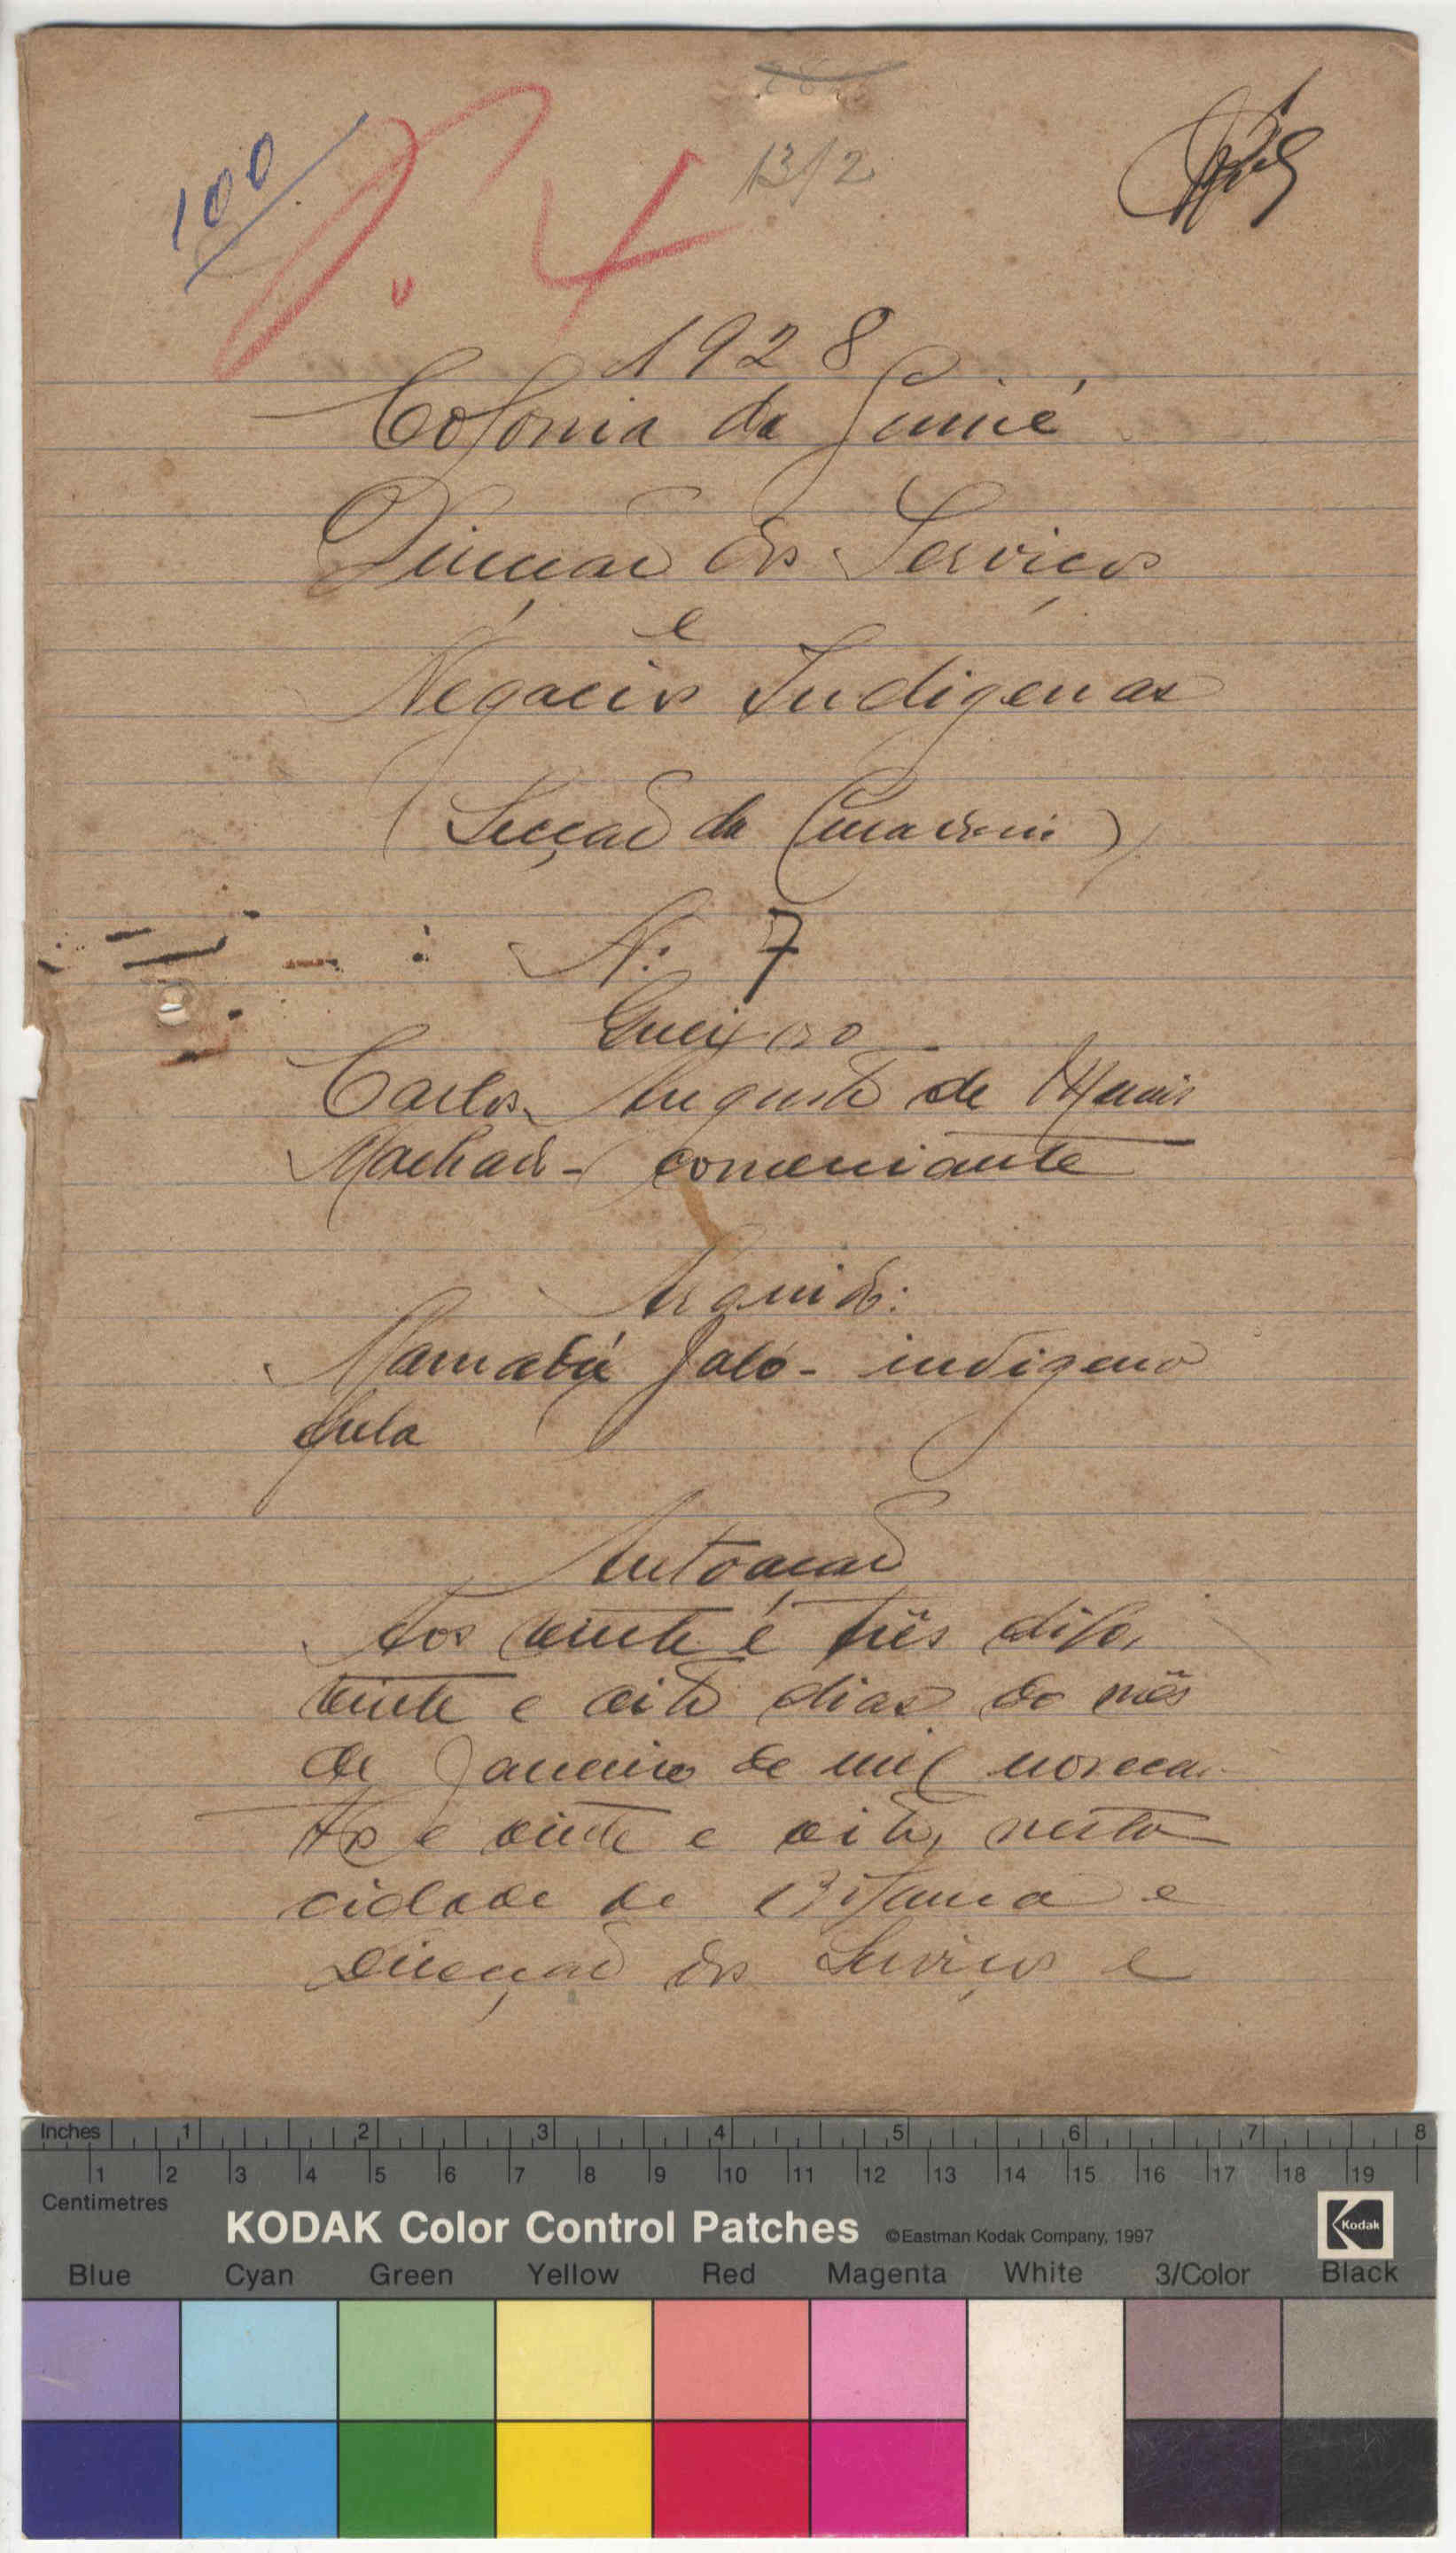 100
13/2
1928
Colonia da Guiné
Direcção dos Serviços
e
Negocios Indigenas
(Secção da Curadoria)
N.º 7
Queixoso
Carlos Augusto de
Machado - comerciante
Arguido:
Mamadú Jaló - indigena
fula
Autoação
Aos vinte e três digo,
vinte e oito dias do mês
de Janeiro de mil novecen-
tos e vinte e oito, nesta
cidade de Bissau e
Direcção dos Serviços e
Inches 1 2 3 4 5 6 7 8
1 2 3 4 5 6 7 8 9 10 11 12 13 14 15 16 17 18 19
Centimetres
KODAK Color Control Patches ©Eastman Kodak Company, 1997 Kodak
Blue Cyan Green Yellow Red Magenta White 3/Color Black